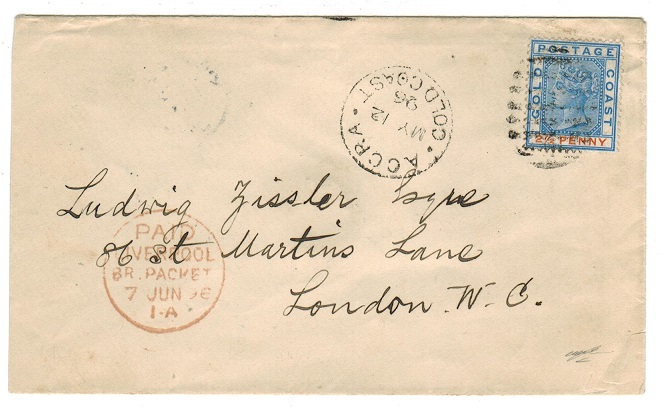 POSTAGE
GOLD
COAST
2½ PENNY
ACCRA
MY 12
96
GOLD COAST
Ludwig Zissler Esqre
86 St Martins Lane
London. W. C.
PAID
LIVERPOOL
BR. PACKET
7 JUN 96
1-A